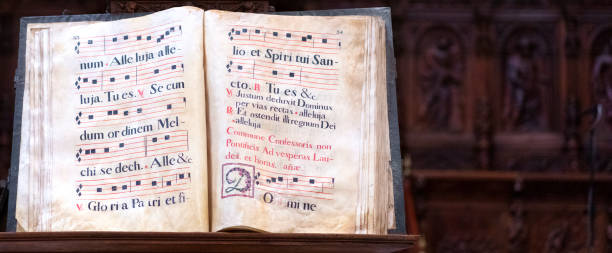 33
num. Alle luja alle
luja. Tu es. V Se cun
dum or dinem. Mel-
chi se dech. Alle &c
V Glo ri a Pa tri et fi
34
lio et Spi ri tui San-
cto. R Tu es &c
V Justum deduxit Dominus
per vias rectas alleluja
R Et ostendit illi regnum Dei
alleluja
Commune Confessoris non
Pontificis Ad vesperas Lau-
des. et horas. añæ
D O mine